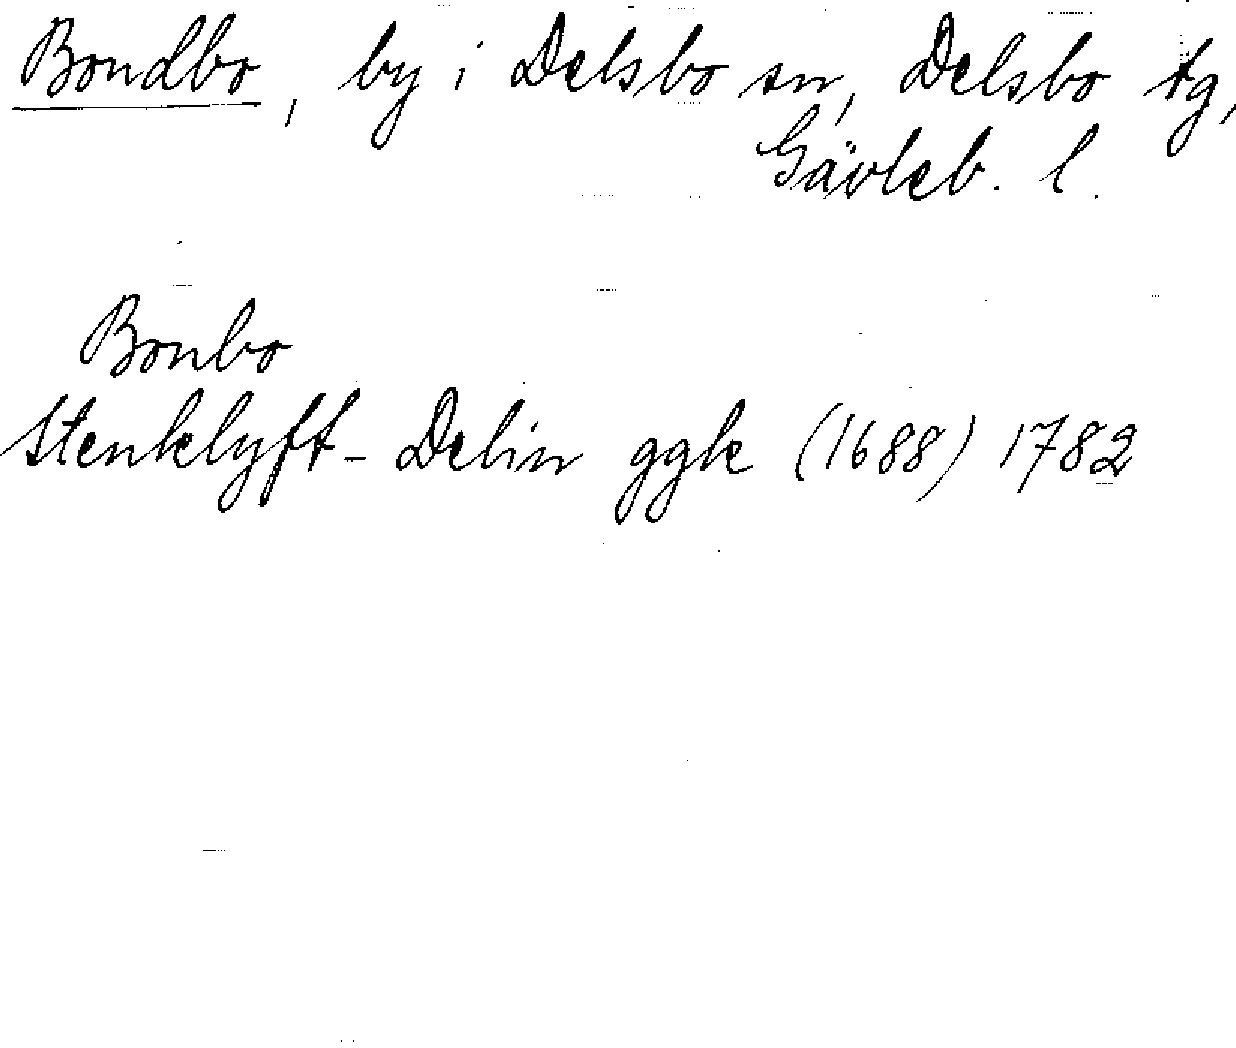 Bondbo, by i Delsbo sn, Delsbo tg,
Gävleb. l.
Bonbo
Stenklyft - Delin ggk (1688) 1782